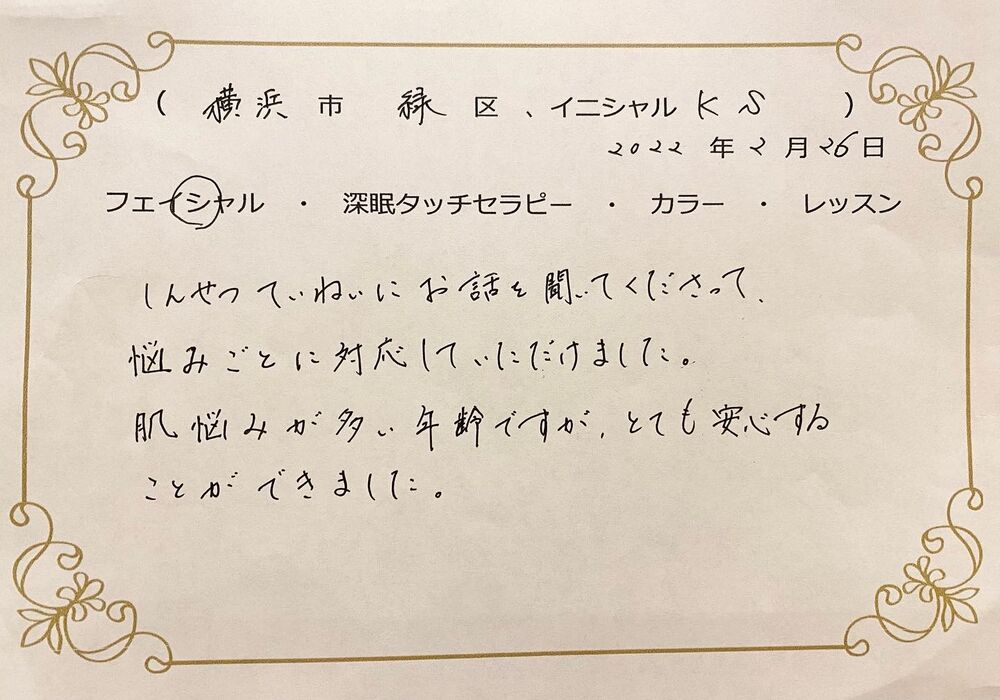 ( 横浜 市 緑 区 、イニシャル K S )
2022 年 2 月 26 日
フェイシャル ・ 深眠タッチセラピー ・ カラー ・ レッスン
しんせつていねいにお話を聞いてくださって、
悩みごとに対応していただけました。
肌悩みが多い年齢ですが、とても安心する
ことができました。